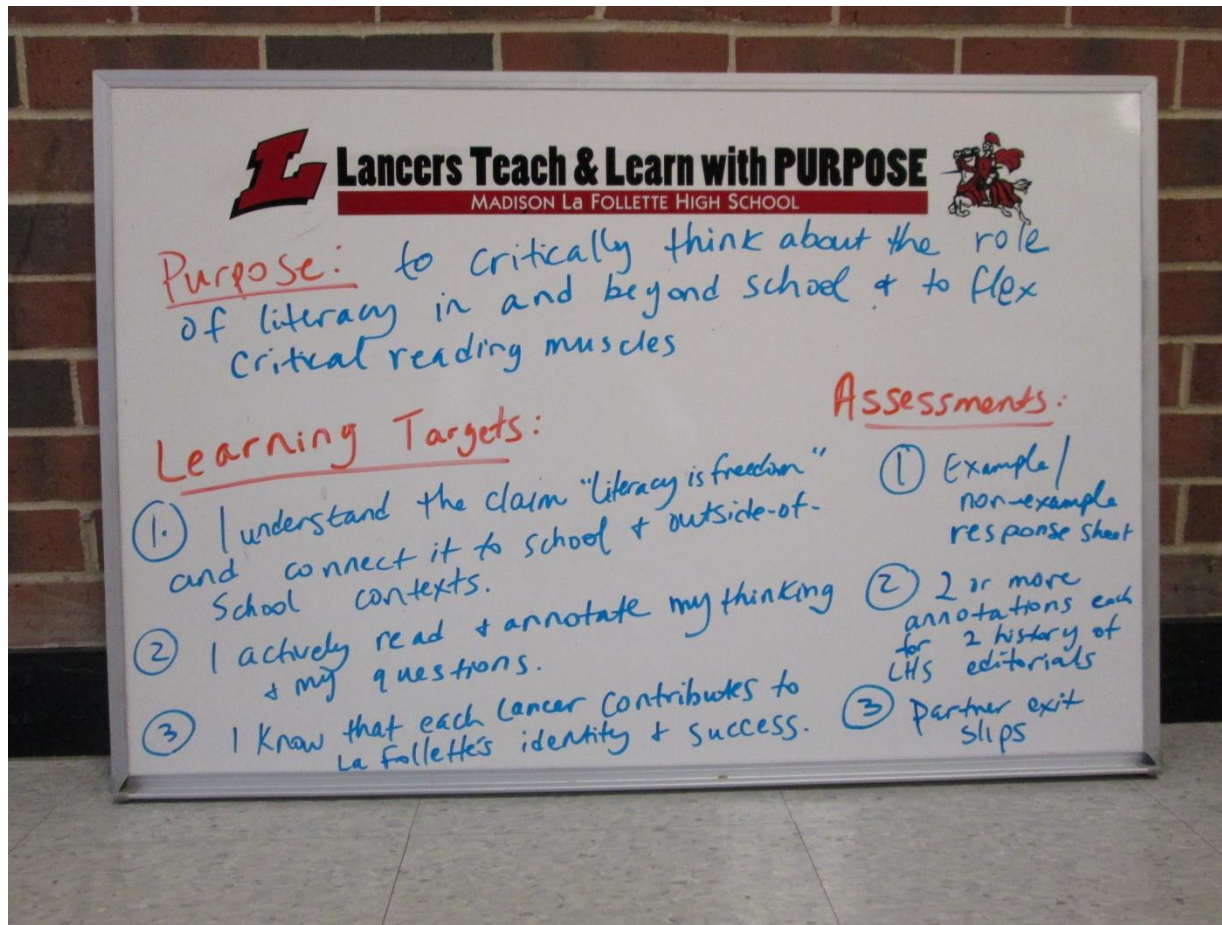 L
Lancers Teach & Learn with PURPOSE
MADISON LA FOLLETTE HIGH SCHOOL
Purpose: to critically think about the role
of literacy in and beyond school & to flex
critical reading muscles
Learning Targets:
1. I understand the claim "literacy is freedom"
and connect it to school & outside-of-
School contexts.
2 I actively read & annotate my thinking
& my questions.
3 I know that each Lancer contributes to
La Follette's identity & success.
Assessments:
1 Example/
non-example
response sheet
2 2 or more
annotations each
for 2 history of
LHS editorials
3 partner exit
slips